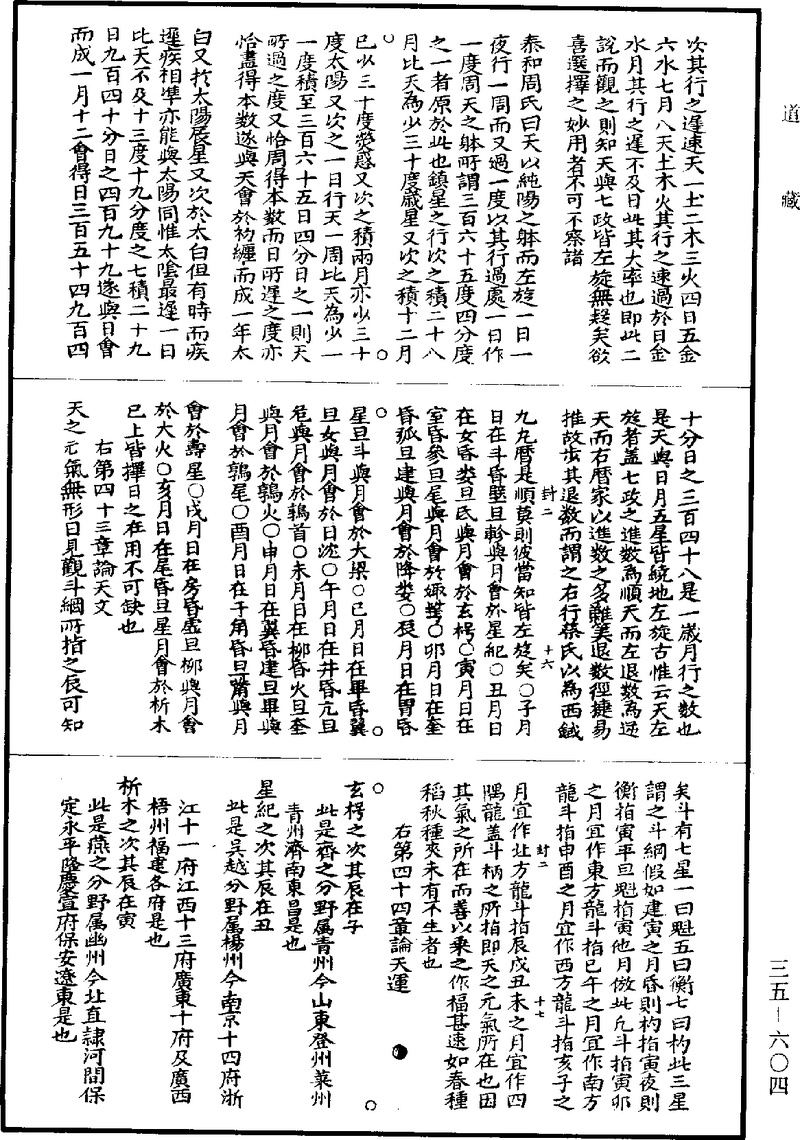 道藏
次其行之遲速天一土二木三火四日五金
六水七月八天土木火其行之速過於日金
水月其行之遲不及日此其大率也即此二
說而觀之則知天與七政皆左旋無疑矣欲
喜選擇之妙用者不可不察諸
泰和周氏曰天以純陽之躰而左旋一日一
夜行一周而又過一度以其行過處一日作
一度周天之躰所謂三百六十五度四分度
之一者原於此也鎮星之行次之積二十八
月比天為少三十度歲星又次之積十二月
已少三十度熒惑又次之積兩月亦少三十
度太陽又次之一日行天一周比天為少一
一度積至三百六十五日四分日之一則天
所過之度又恰周得本數而日所遲之度亦
恰盡得本數遂與天會於初纏而成一年太
白又扵太陽辰星又次於太白但有時而疾
遲疾相準亦能與太陽同惟太陰最遲一日
比天不及十三度十九分度之七積二十九
日九百四十分日之四百九十九遂與日會
而成一月十二會得日三百五十四九百四
十分日之三百四十八是一歲月行之數也
是天與日月五星皆繞地左旋古惟云天左
旋者蓋七政之進數為順天而左退數為逆
天而右曆家以進數之多難筭退數徑捷易
推故步其退數而謂之右行蔡氏以為西鉞
九九曆是順莫則彼當知皆左旋矣○子月
日在斗昏壁旦軫與月會於星紀○丑月日
在女昏婁旦氐與月會於玄枵○寅月日在
室昏參旦尾與月會於娵訾○卯月日在奎
昏弧旦建與月會於降婁○辰月日在胃昏
星旦斗與月會於大梁○巳月日在畢昏翼
旦女與月會於日沈○午月日在井昏亢旦
危與月會於鶉首○未月日在柳昏火旦奎
與月會於鶉火○申月日在翼昏建旦畢與
月會於鶉尾○酉月日在子角昏旦觜與月
會於壽星○戌月日在房昏虛旦柳與月會
於大火○亥月日在尾昏旦星月會於析木
已上皆擇日之在用不可缺也
右第四十三章論天文
天之元氣無形日見觀斗綱所指之辰可知
矣斗有七星一曰魁五曰衡七曰杓此三星
謂之斗綱假如建寅之月昏則杓指寅夜則
衡指寅平旦魁指寅他月倣此凢斗指寅卯
之月宜作東方龍斗指巳午之月宜作南方
龍斗指申酉之月宜作西方龍斗指亥子之
月宜作北方龍斗指辰戌丑未之月宜作四
隅龍蓋斗柄之所指即天之元氣所在也因
其氣之所在而善以乘之作福甚速如春種
稻秋種麥未有不生者也
右第四十四章論天運
玄枵之次其辰在子
此是齊之分野属青州今山東登州萊州
青州濟南東昌是也
星紀之次其辰在丑
此是吳越分野属楊州今南京十四府浙
江十一府江西十三府廣東十府及廣西
梧州福建各府是也
析木之次其辰在寅
此是燕之分野属幽州今北直隸河間保
定永平隆慶宣府保安遼東是也
封二
十六
封二
十七
三五—六〇四